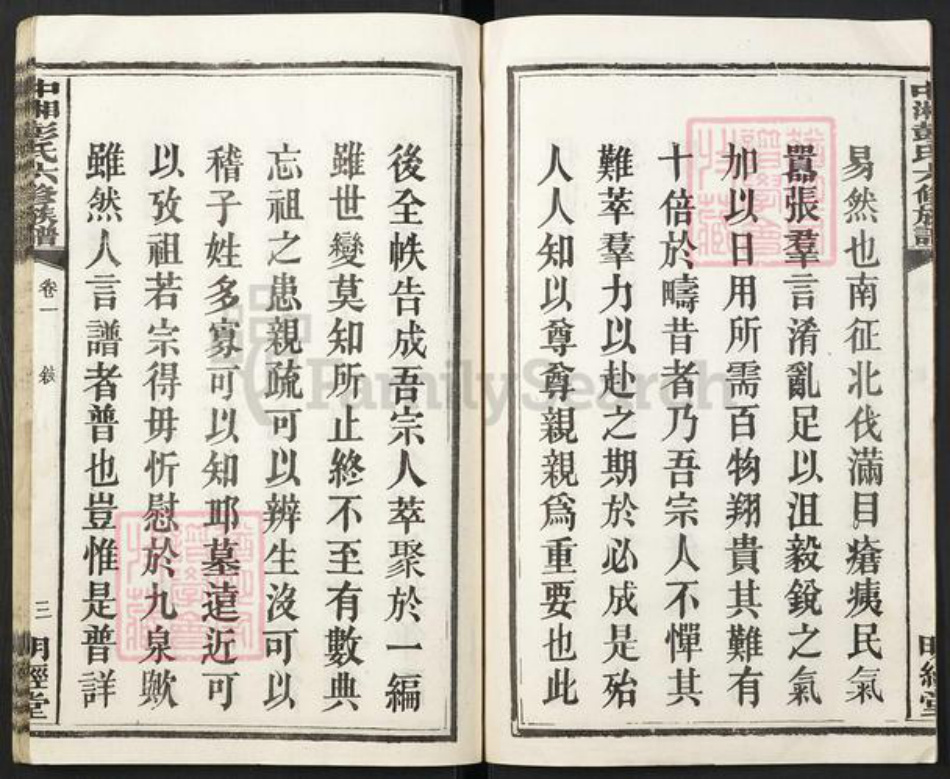 中湘彭氏六修族譜
易然也南征北伐滿目瘡痍民氣
囂張羣言淆亂足以沮毅銳之氣
加以日用所需百物翔貴其難有
十倍於疇昔者乃吾宗人不憚其
難萃羣力以赴之期於必成是殆
人人知以尊尊親親爲重要也此
後全帙告成吾宗人萃聚於一編
雖世變莫知所止終不至有數典
忘祖之患親疏可以辨生沒可以
稽子姓多寡可以知耶墓遠近可
以攷祖若宗得毋忻慰於九泉歟
雖然人言譜者普也豈惟是普詳
中湘彭氏六修族譜
卷一
敘
三
明經堂
FamilySearch